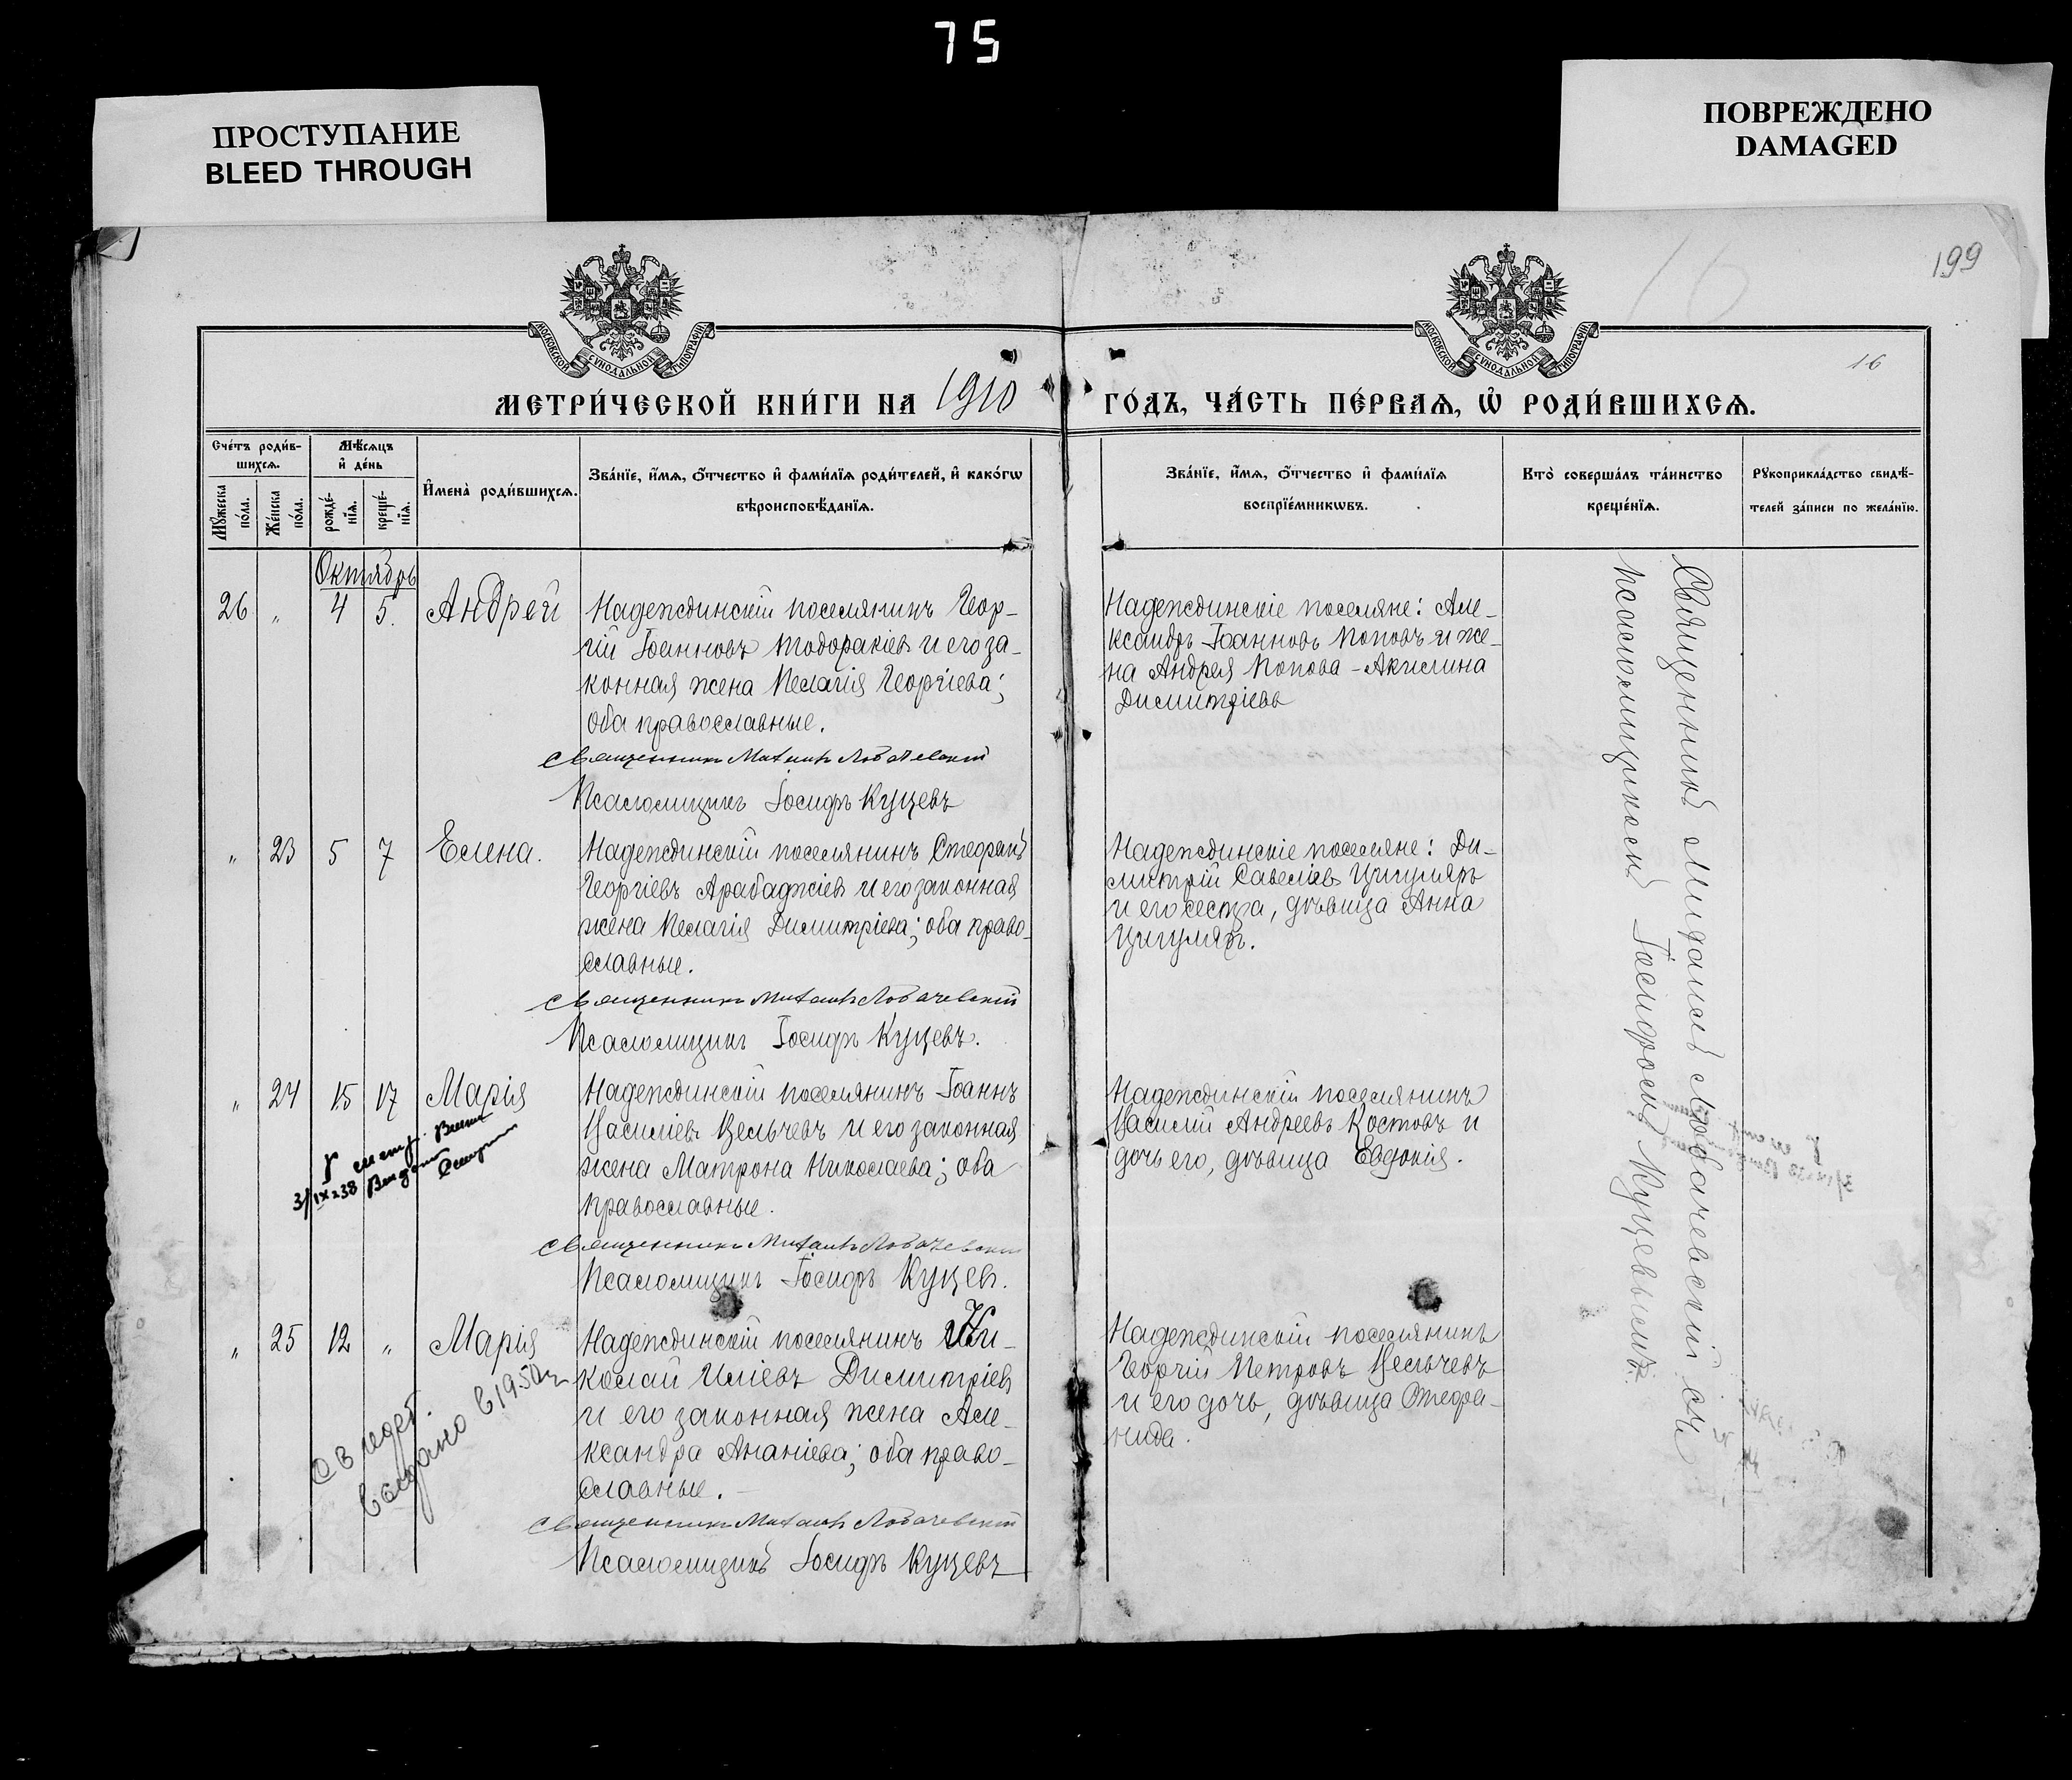 75
ПРОСТУПАНИЕ
BLEED THROUGH
ПОВРЕЖДЕНО
DAMAGED
199
16
16
МОСКОВСКОЙ СѴНОДАЛЬНОЙ ТИПОГРАФІИ
МОСКОВСКОЙ СѴНОДАЛЬНОЙ ТИПОГРАФІИ
МЕТРИ́ЧЕСКОЙ КНИ́ГИ НА 1910 ГО́ДЪ, ЧА́СТЬ ПЕ́РВАѦ, Ѡ҆ РОДИ́ВШИХСѦ.
Сче́тъ роди́в-
шихсѧ.
Мꙋ́жеска по́ла.
Же́нска по́ла.
Мѣ́сѧцъ
и҆ де́нь
рожде́-
нїѧ.
креще́-
нїѧ.
И҆мена̀ роди́вшихсѧ.
Зва́нїе, и҆́мѧ, ѻ҆́тчество и҆ фами́лїѧ роди́телей, и҆ како́гѡ
вѣроисповѣ́данїѧ.
Зва́нїе, и҆́мѧ, ѻ҆́тчество и҆ фами́лїѧ
воспрїе́мникѡвъ.
Кто̀ соверша́лъ та́инство
креще́нїѧ.
Рꙋкоприкла́дство свидѣ́-
телей за́писи по жела́нїю.
Октябрь
26 " 4 5. Андрей
Надеждинскій поселянинъ Геор-
гій Іоанновъ Тодоракіевъ и его за-
конная жена Пелагія Георгіева;
оба православные.
Священникъ Михаилъ Лобачевскій
Псаломщикъ Іосифъ Куцевъ
Надеждинскіе поселяне: Але-
ксандръ Іоанновъ Поповъ и же-
на Андрея Попова - Акилина
Димитріева
" 23 5 7 Елена.
Надеждинскій поселянинъ Стефанъ
Георгіевъ Арабаджіевъ и его законная
жена Пелагія Димитріева; оба право-
славные.
Священникъ Михаилъ Лобачевскій
Псаломщикъ Іосифъ Куцевъ.
Надеждинскіе поселяне: Ди-
митрій Савеліевъ Цигуляръ
и его сестра, дѣвица Анна
Цигуляръ.
" 24 15 17 Марія
3/IX-38
Надеждинскій поселянинъ Іоаннъ
Василіевъ Вельчевъ и его законная
жена Матрона Николаева; оба
православные.
Священникъ Михаилъ Лобачевскій
Псаломщикъ Іосифъ Куцевъ.
Надеждинскій поселянинъ
Василій Андреевъ Костовъ и
дочь его, дѣвица Евдокія.
" 25 12 " Марія
Свидет.
выдано в 1950 г
Надеждинскій поселянинъ Ни-
колай Иліевъ Димитріевъ
и его законная жена Але-
ксандра Ананіева; оба право-
славные.
Священникъ Михаилъ Лобачевскій
Псаломщикъ Іосифъ Куцевъ
Надеждинскій поселянинъ
Георгій Петровъ Вельчевъ
и его дочь, дѣвица Стефа-
нида.
Священникъ Михаилъ Лобачевскій съ
псаломщикомъ Іосифомъ Куцевымъ.